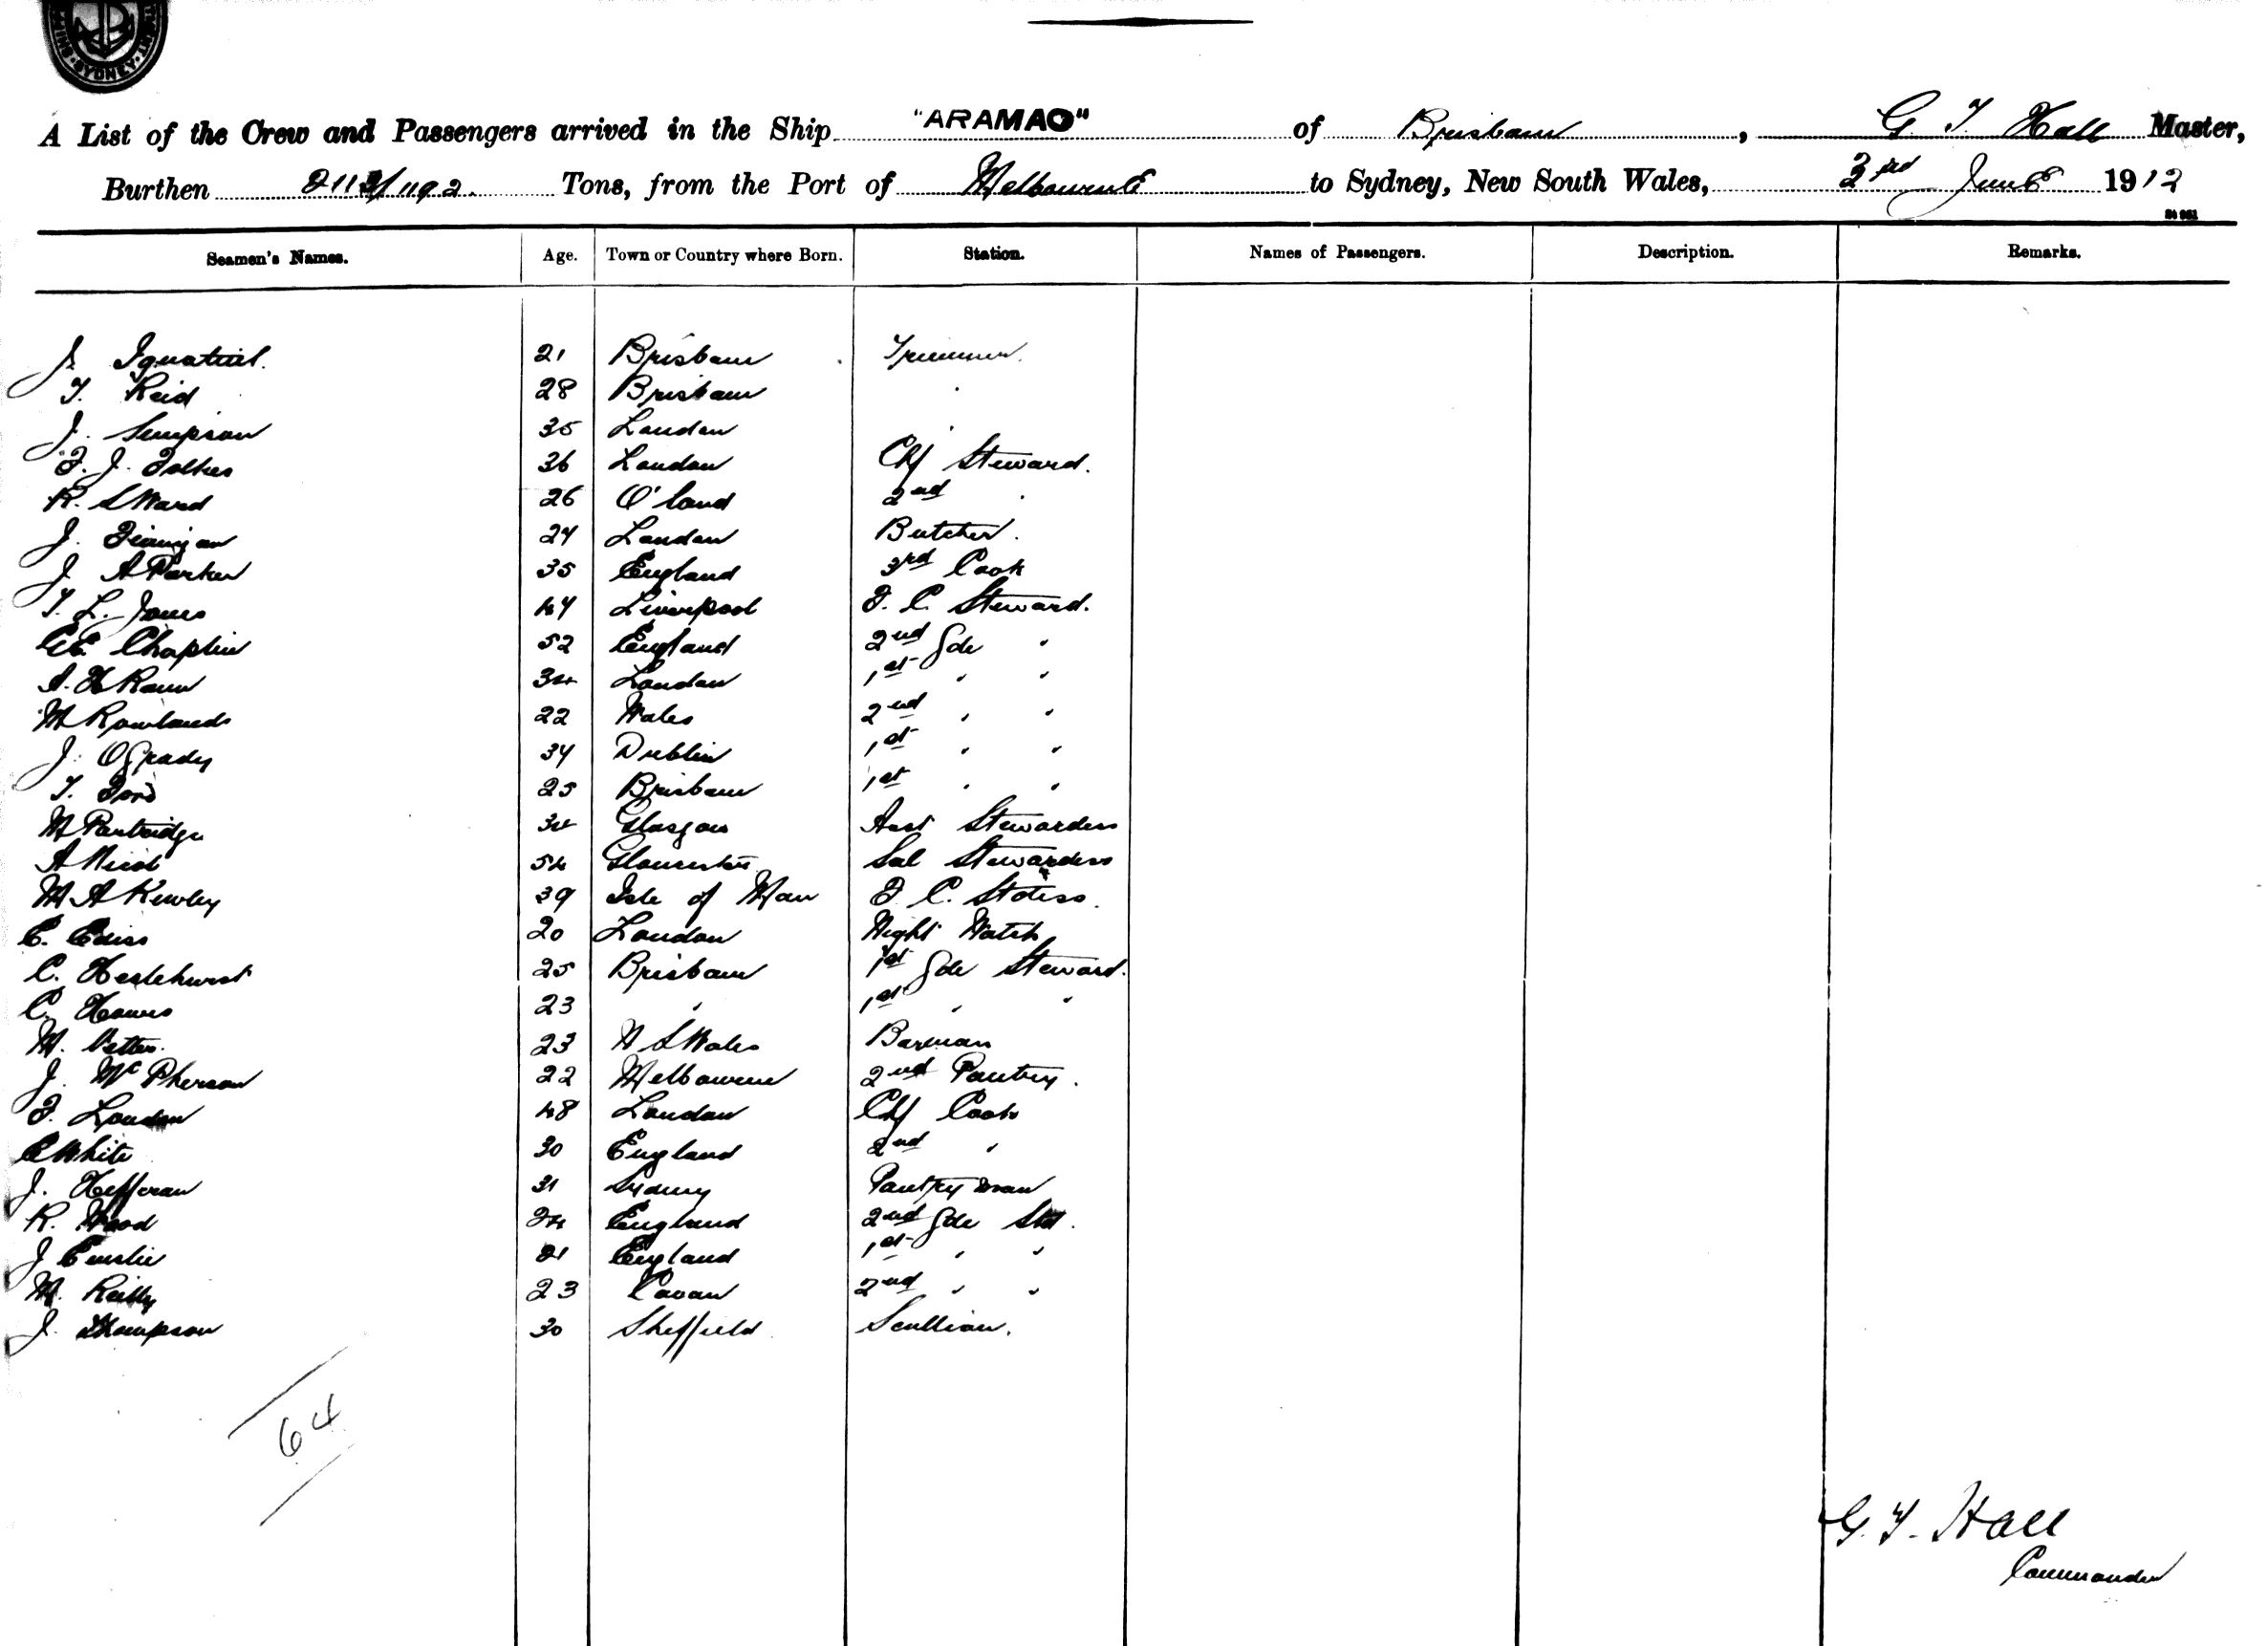 SYDNEY
A List of the Crew and Passengers arrived in the Ship "ARAMAC" of Brisbane, G T Hall Master,
Burthen 2113/1192 Tons, from the Port of Melbourne to Sydney, New South Wales, 3rd June 1912
Seamen's Names. Age. Town or Country where Born. Station. Names of Passengers. Description. Remarks.
J. 21 Brisbane Trimmer
T. Reid 28 Brisbane "
J. Simpson 35 London "
F. J. Folkes 36 London Chf Steward.
R. S Ward 26 Q'land 2nd "
J. Finnigan 24 London Butcher.
J A Parker 35 England 3rd Cook
T. L. Jones 44 Liverpool F. C. Steward.
Chaplin 52 England 2nd Gde "
A. H Rann 34 London 1st " "
M Rowlands 22 Wales 2nd " "
J. O Grady 34 Dublin 1st " "
T. Ford 25 Brisbane 1st " "
M Partridge 34 Glasgow Asst Stewardess
A Nicol 54 Gloucester Sal Stewardess
M A Kewley 39 Isle of Man F. C. Stdess.
E. Ediss 20 London Night Watch
C. Heslehurst 25 Brisbane 1st Gde Steward.
C. Hawes 23 " 1st " "
M. Vetter. 23 N S Wales Barman
J. McPherson 22 Melbourne 2nd Pantry.
F. London 48 London Chf Cook
C White 30 England 2nd "
J. Hefferan 31 Sydney Pantryman
R. Wood 24 England 2nd Gde Std.
J Emslie 21 England 1st " "
M. Reilly 23 Cavan 2nd " "
J. Thompson 30 Sheffield Scullion.
64
G. T. Hall
Commander